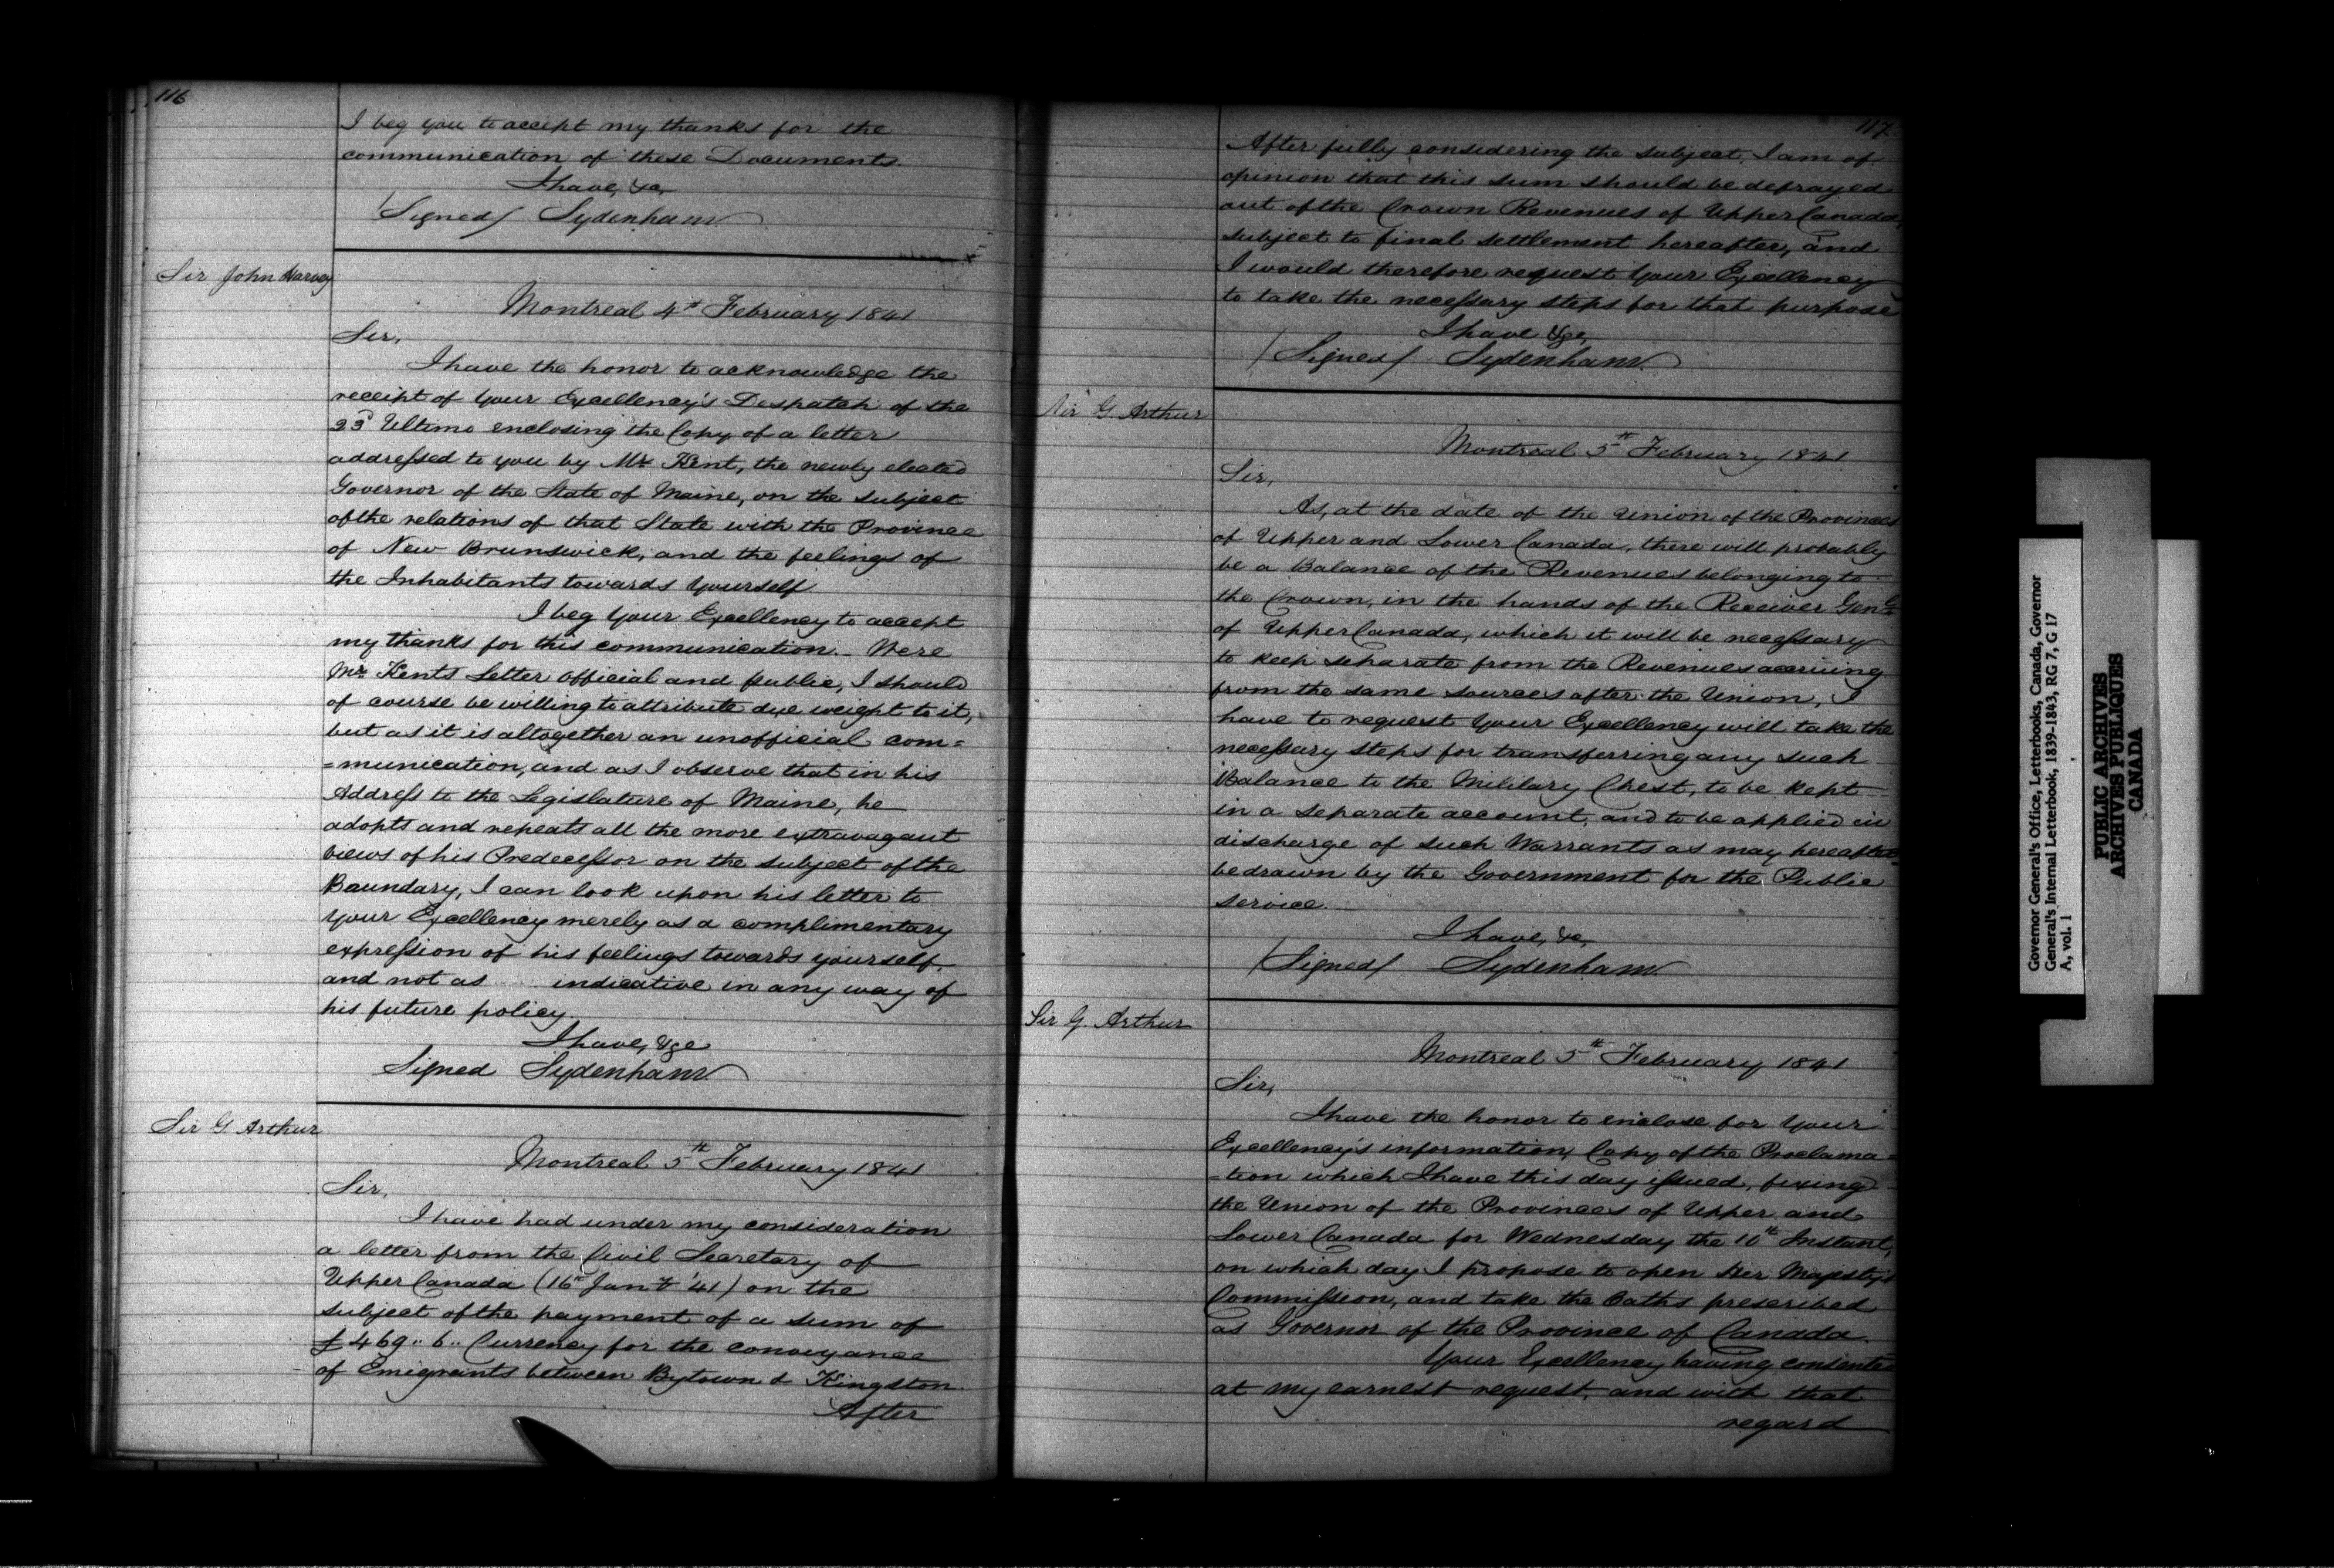 116
I beg you to accept my thanks for the
communication of these Documents.
I have, &c,
(Signed) Sydenham
Sir John Harvey
Montreal 4th February 1841
Sir,
I have the honor to acknowledge the
receipt of Your Excellency's Despatch of the
23d Ultimo enclosing the Copy of a letter
addressed to you by Mr Kent, the newly elected
Governor of the State of Maine, on the subject
of the relations of that State with the Province
of New Brunswick, and the feelings of
the Inhabitants towards Yourself
I beg Your Excellency to accept
my thanks for this communication. Were
Mr Kents Letter official and public, I should
of course be willing to attribute due weight to it,
but as it is altogether an unofficial com=
=munication, and as I observe that in his
Address to the Legislature of Maine, he
adopts and repeats all the more extravagant
views of his Predecessor on the subject of the
Boundary, I can look upon his letter to
Your Excellency merely as a complimentary
expression of his feelings towards yourself,
and not as indicative in any way of
his future policy.
I have, &c
Signed Sydenham
Sir G. Arthur
Montreal 5th February 1841
Sir,
I have had under my consideration
a letter from the Civil Secretary of
Upper Canada (16th Jany '41) on the
subject of the payment of a sum of
£469..6.. Currency for the conveyance
of Emigrants between Bytown & Kingston.
After
117.
After fully considering the subject, I am of
opinion that this sum should be defrayed
out of the Crown Revenues of Upper Canada,
subject to final settlement hereafter, and
I would therefore request Your Excellency
to take the necessary steps for that purpose
I have &c,
(Signed) Sydenham
Sir G. Arthur
Montreal 5th February 1841
Sir,
As, at the date of the Union of the Provinces
of Upper and Lower Canada, there will probably
be a Balance of the Revenues belonging to
the Crown, in the hands of the Receiver Genl
of Upper Canada, which it will be necessary
to keep separate from the Revenues accruing
from the same sources after the Union, I
have to request Your Excellency will take the
necessary steps for transferring any such
Balance to the Military Chest, to be kept
in a separate account, and to be applied in
discharge of such Warrants as may hereafter
be drawn by the Government for the Public
service.
I have, &c,
(Signed) Sydenham
Sir G. Arthur
Montreal 5th February 1841
Sir,
I have the honor to enclose for Your
Excellency's information, Copy of the Proclama=
=tion which I have this day issued, fixing
the Union of the Provinces of Upper and
Lower Canada for Wednesday the 10th Instant,
on which day I propose to open Her Majesty's
Commission, and take the Oaths prescribed
as Governor of the Province of Canada.
Your Excellency having consented
at my earnest request, and with that
regard
Governor General's Office, Letterbooks, Canada, Governor
General's Internal Letterbook, 1839-1843, RG 7, G 17
A, vol. 1
PUBLIC ARCHIVES
ARCHIVES PUBLIQUES
CANADA